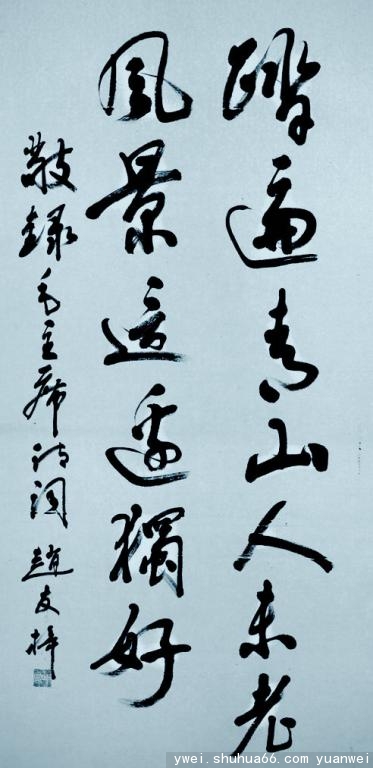 踏遍青山人未老
風景這邊獨好
敬錄毛主席詩詞 趙友梓
ywei.shuhua66.com yuanwei